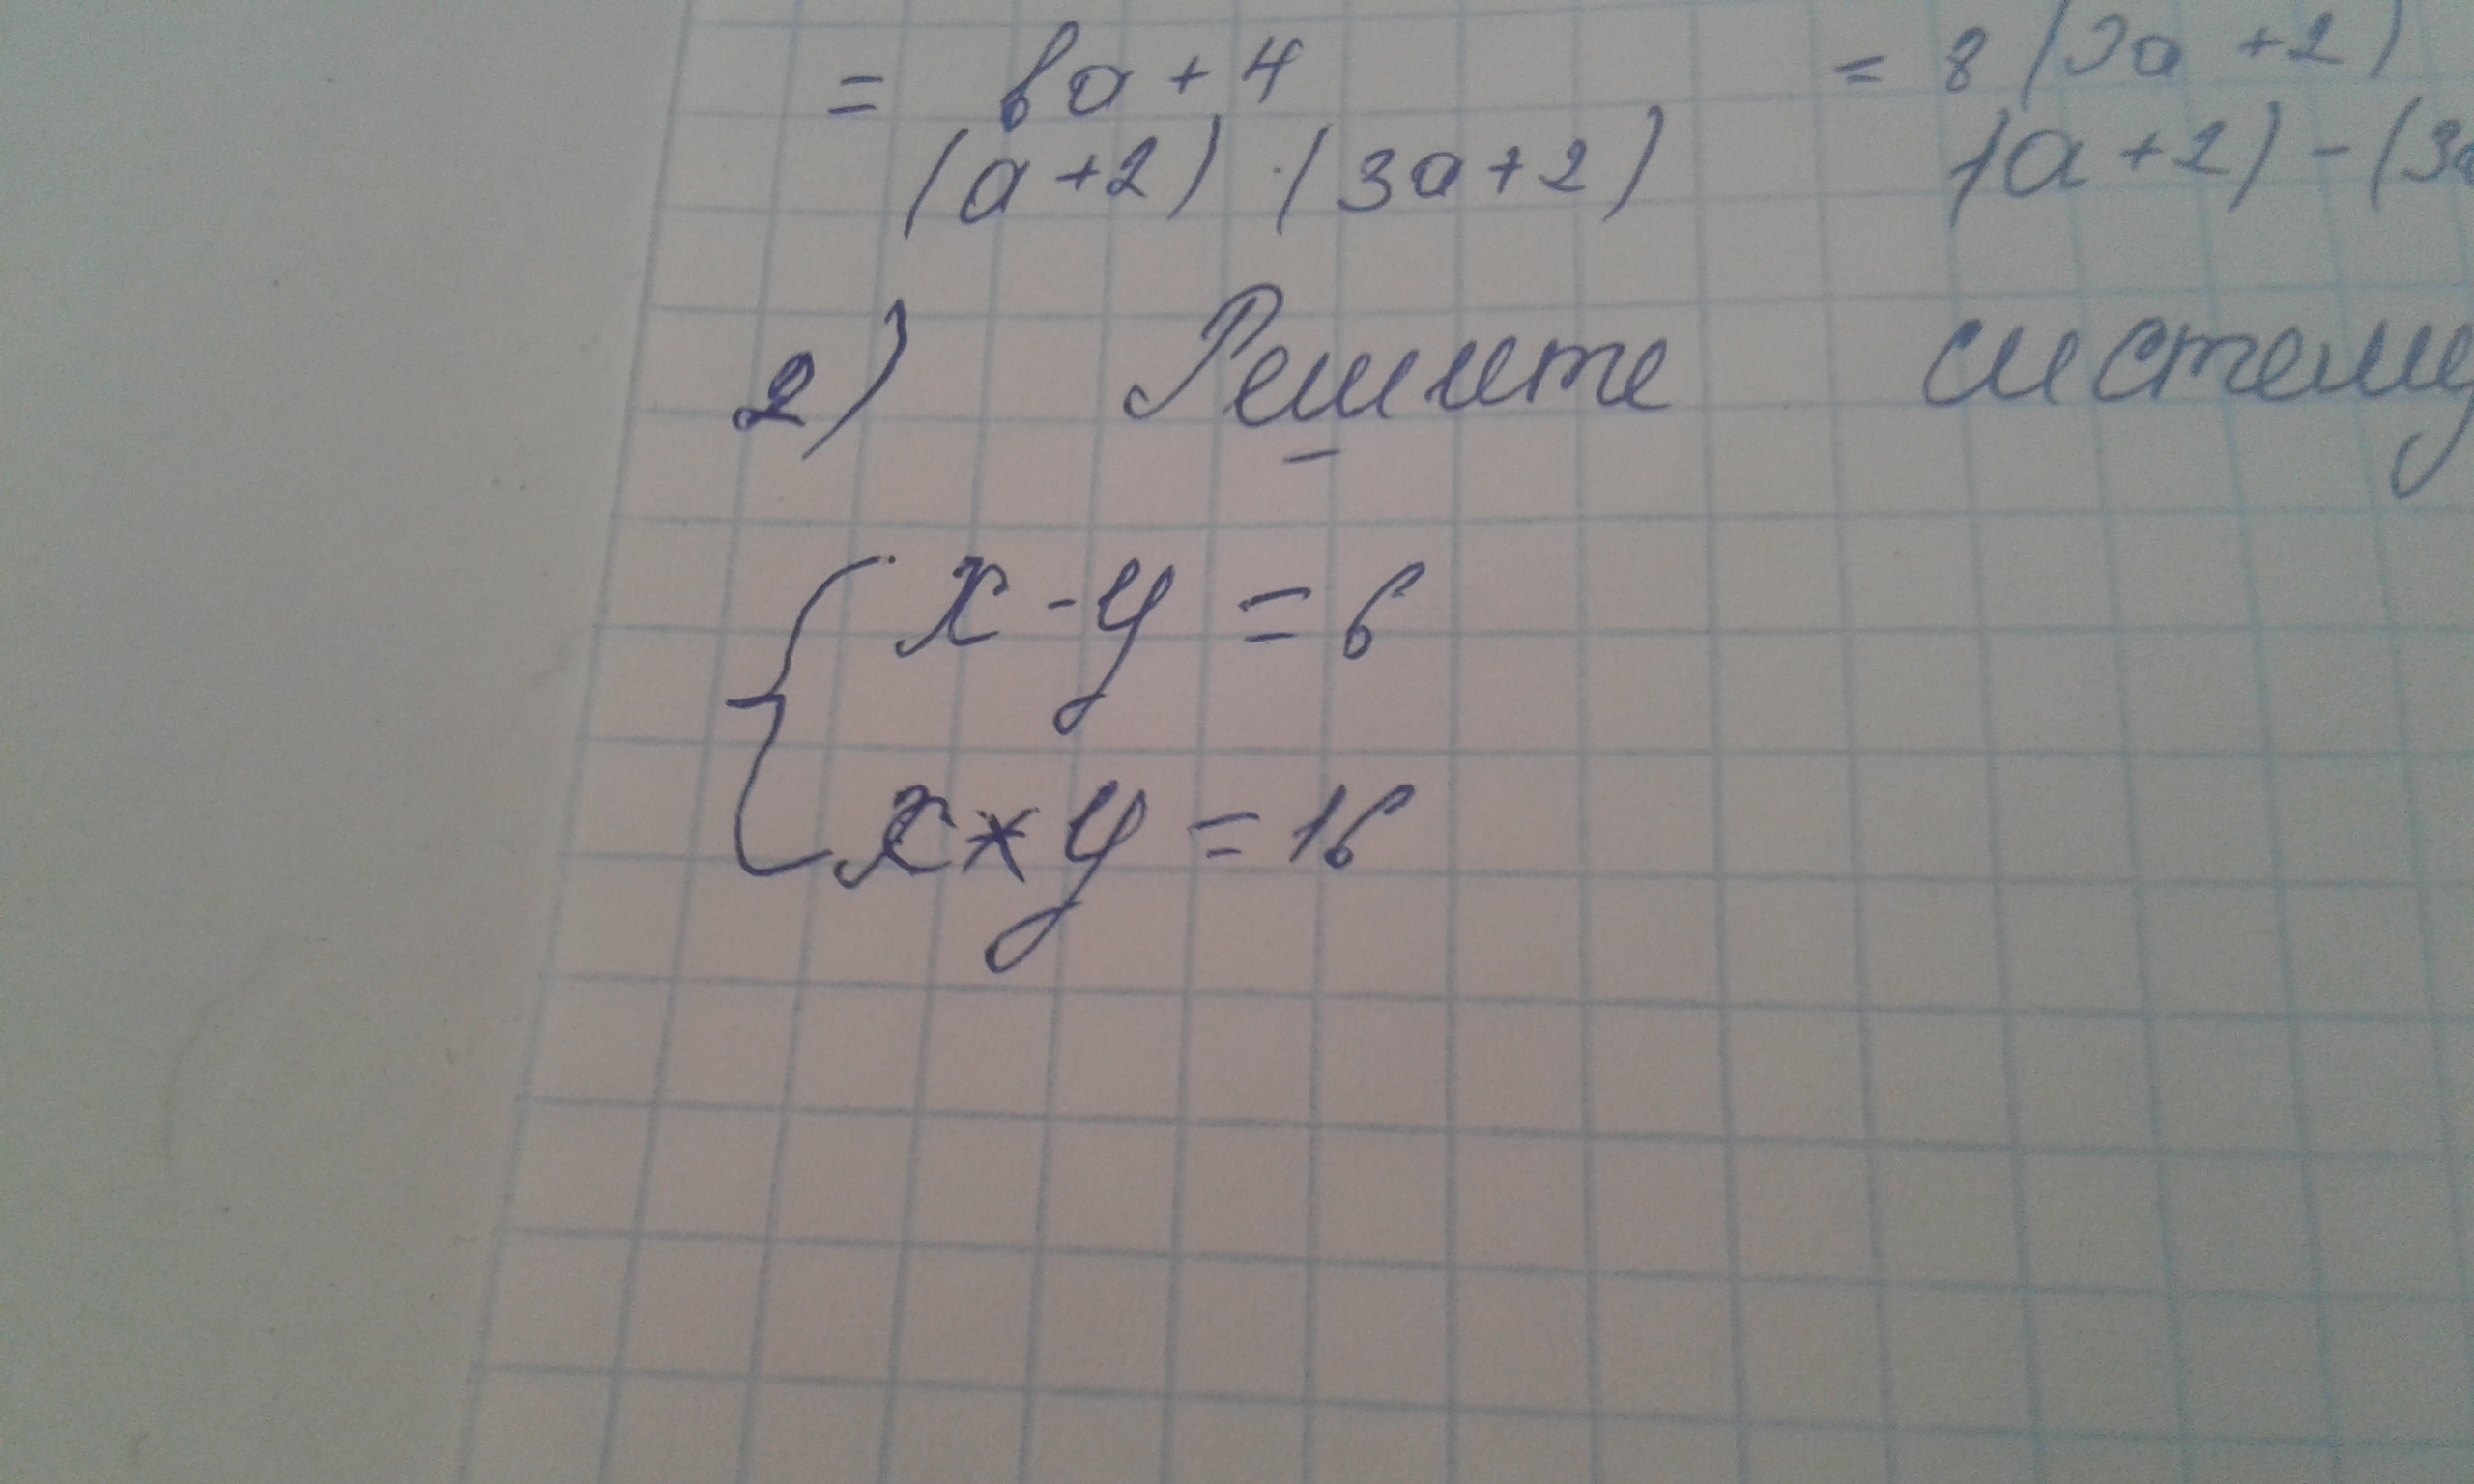 = 6a + 4 = 8 (3a + 2)
(a + 2) · (3a + 2) (a + 2) - (3a
2) Решите систему
x - y = 6
x * y = 16